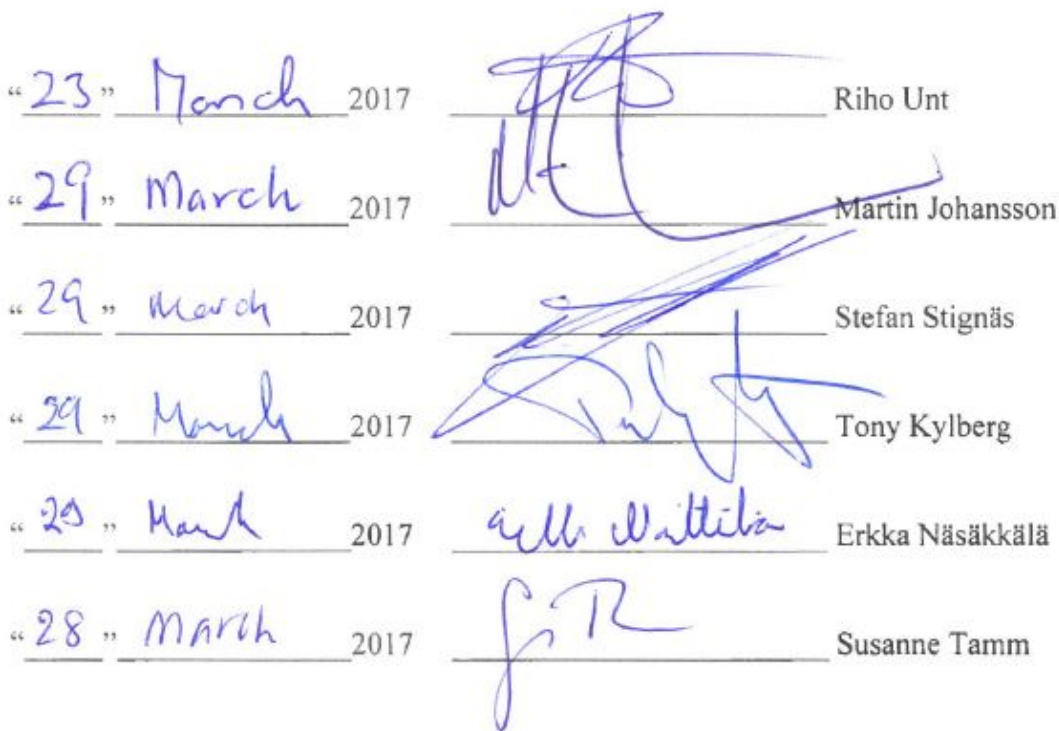 “ 23 ” March 2017 Riho Unt
“ 29 ” March 2017 Martin Johansson
“ 29 ” March 2017 Stefan Stignäs
“ 29 ” March 2017 Tony Kylberg
“ 29 ” March 2017 Erkka Näsäkkälä
“ 28 ” March 2017 Susanne Tamm